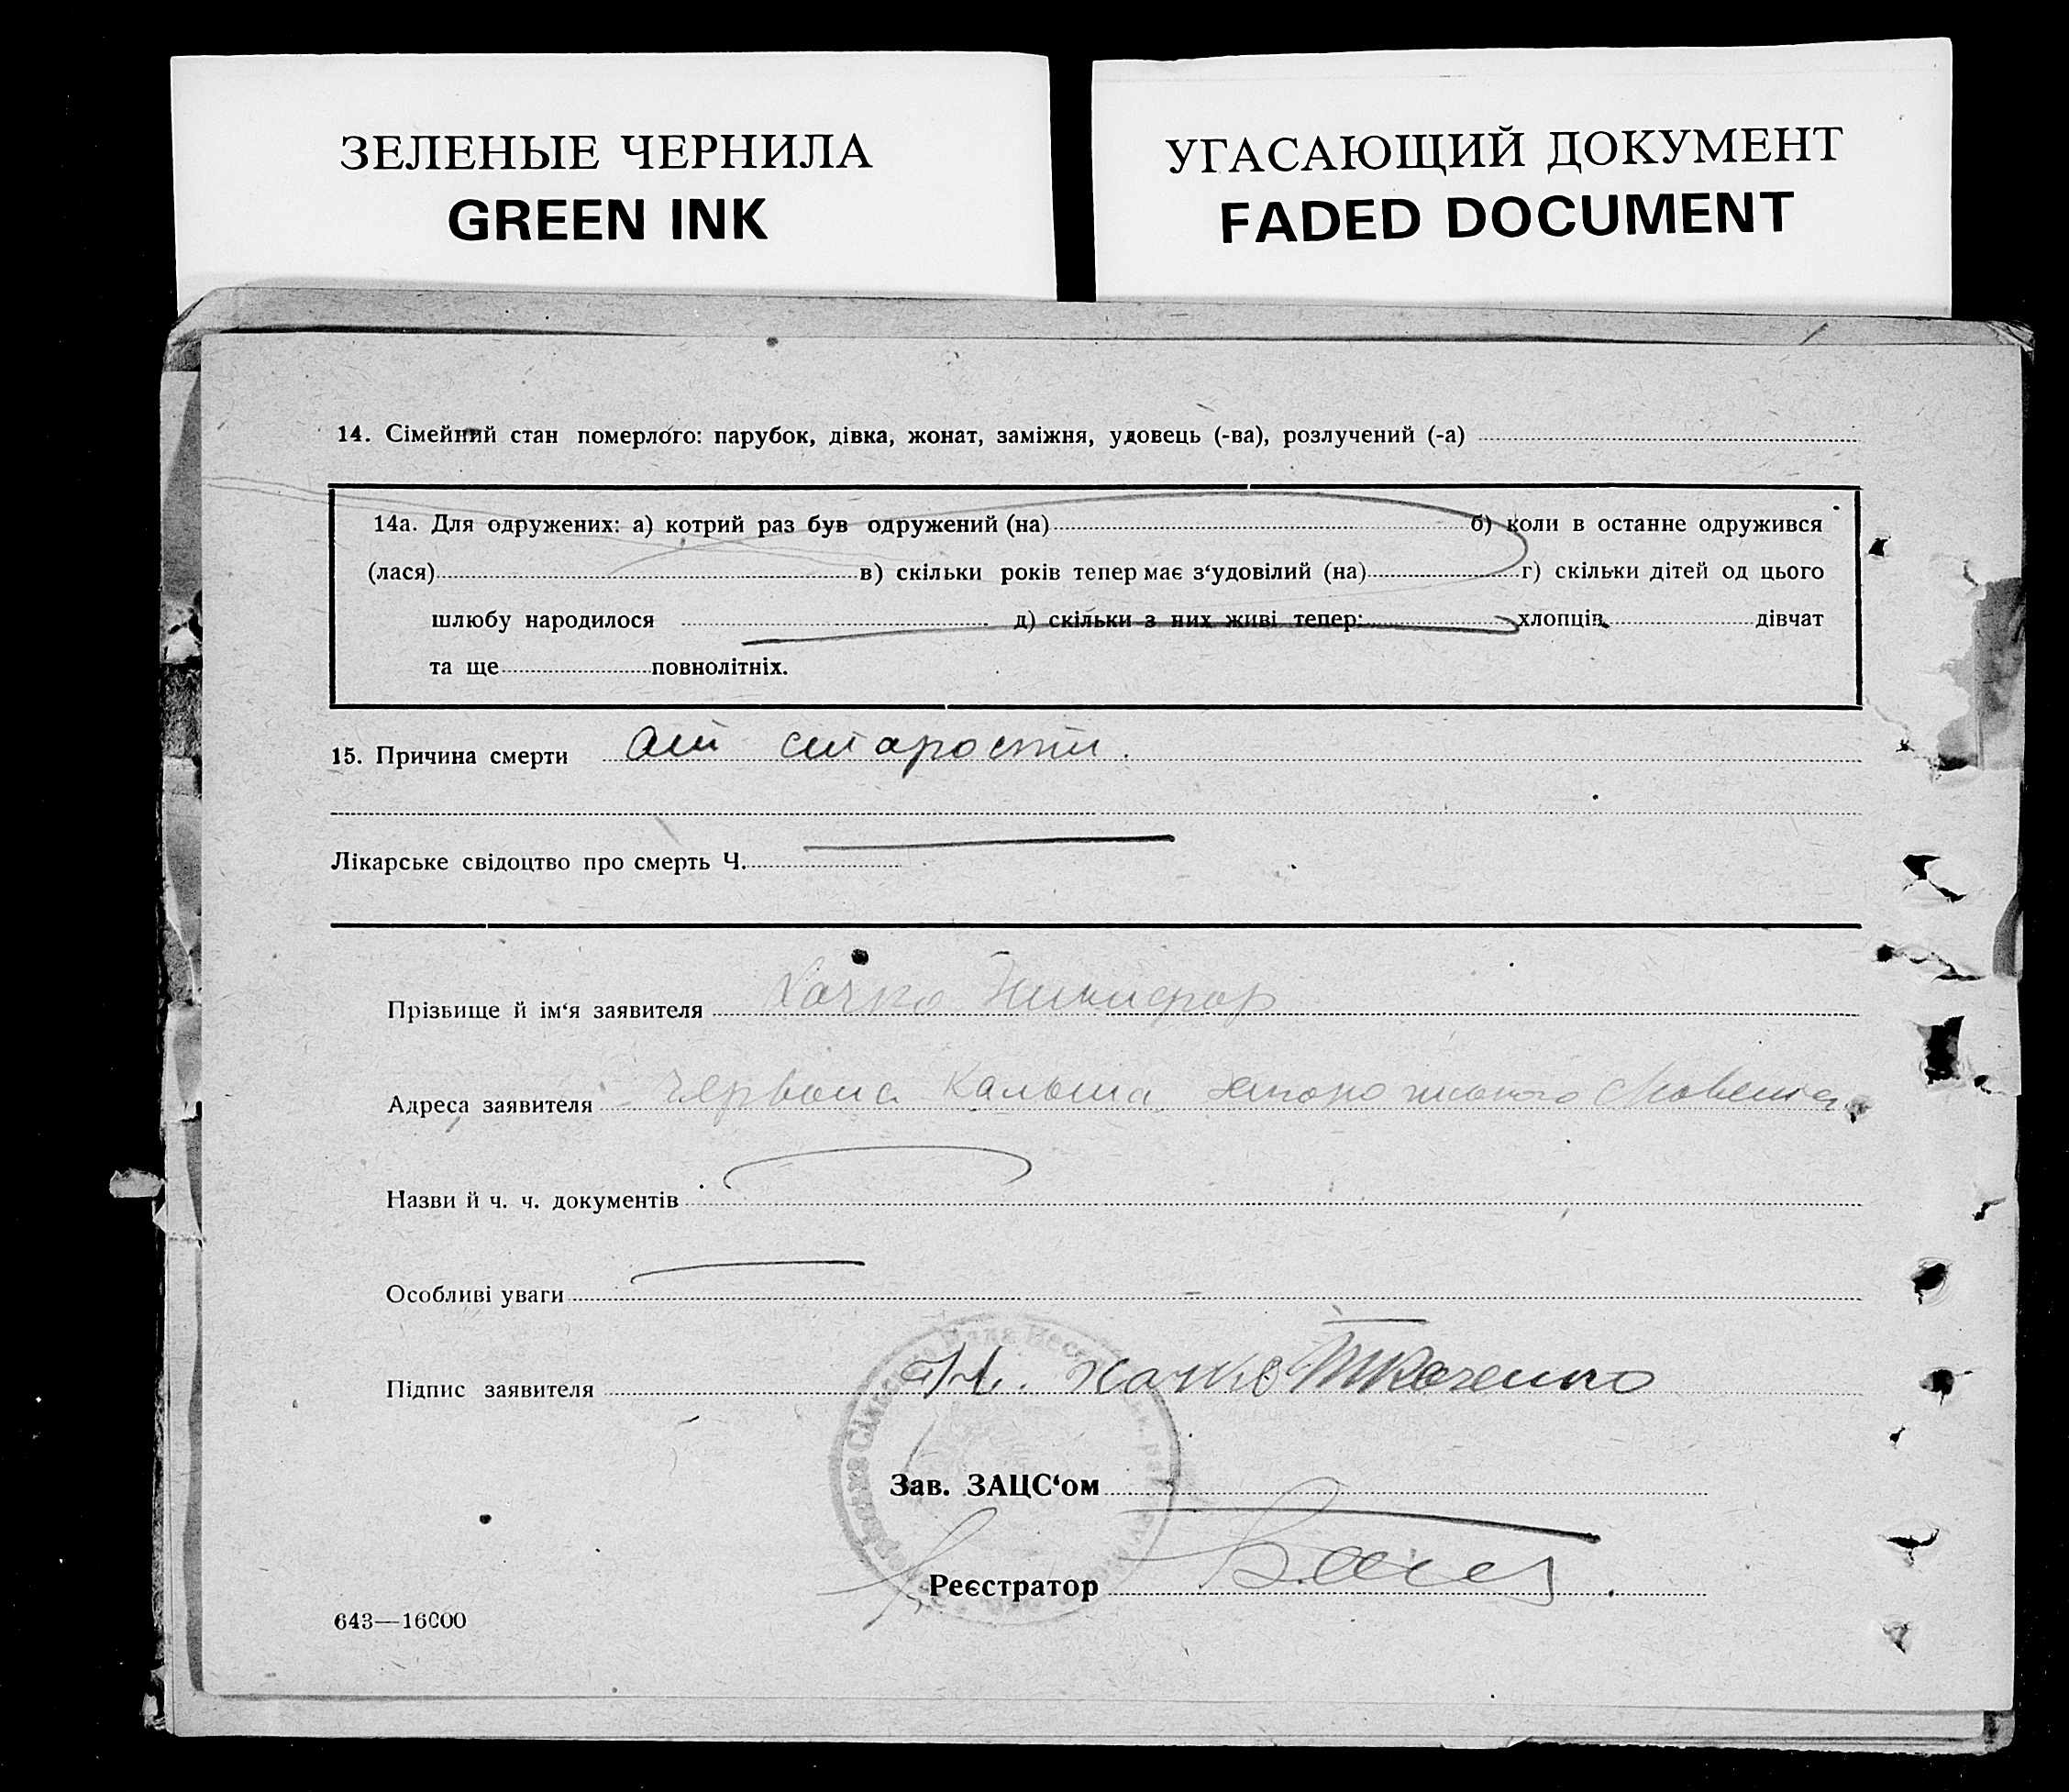 ЗЕЛЕНЫЕ ЧЕРНИЛА
GREEN INK
УГАСАЮЩИЙ ДОКУМЕНТ
FADED DOCUMENT
14. Сімейний стан померлого: парубок, дівка, жонат, заміжня, удовець (-ва), розлучений (-а)
14а. Для одружених: а) котрий раз був одружений (на) б) коли в останне одружився
(лася) в) скільки років тепер має з‘удовілий (на) г) скільки дітей од цього
шлюбу народилося д) скільки з них живі тепер: хлопців дівчат
та ще повнолітніх.
15. Причина смерти старости.
Лікарське свідоцтво про смерть Ч.
Прізвище й ім‘я заявителя Хачко Никифор
Адреса заявителя Червона
Назви й ч. ч. документів
Особливі уваги
Підпис заявителя Н. Хачко Ткаченко
Зав. ЗАЦС‘ом
Реєстратор
643—16000